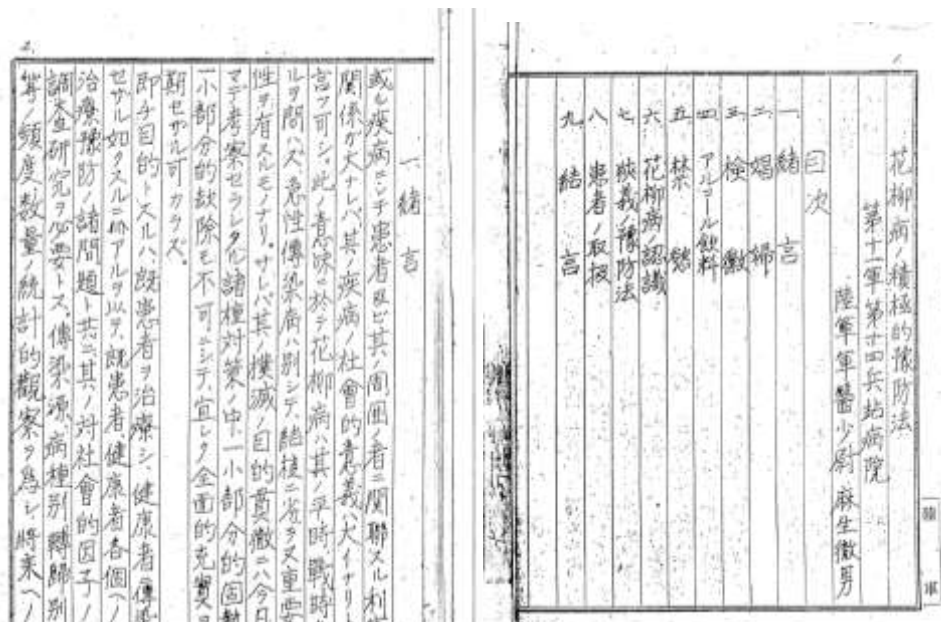 花柳病ノ積極的豫防法
第十一軍第十四兵站病院
陸軍軍醫少尉 麻生徹男
目次
一、緒言
二、娼婦
三、檢黴
四、アルコール飲料
五、禁慾
六、花柳病ノ認識
七、狹義ノ豫防法
八、患者ノ取扱
九、結言
陸軍
1.
2.
一緒言
或ル疾病ニシテ患者及ビ其ノ周囲ノ者ニ関聯スル利
関係ガ大ナレバ其ノ疾病ノ社會的意義ハ大イナリト
言フ可シ。此ノ意味ニ於テ花柳病ハ其ノ平時、戰時
ルヲ問ハズ急性傳染病ハ別シテ、結核ニ劣ラヌ重要
性ヲ有スルモノナリ。サレバ其ノ撲滅ノ目的貫徹ニハ今日
マデ考察セラレタル諸種対策ノ中、一小部分的固執
一小部分的缺除モ不可ニシテ、宜シク全面的充實
期セザル可カラズ。
即チ目的トスルハ既患者ヲ治療シ、健康者ニ傳染
セザル如クスルニアルヲ以テ、既患者、健康者各個ヘノ
治療豫防ノ諸問題ト共ニ其ノ対社會的因子ノ
調査研究ヲ必要トス。傳染源、病種別、轉歸別
等ノ頻度数量ノ統計的觀察ヲ為シ將来ヘノ